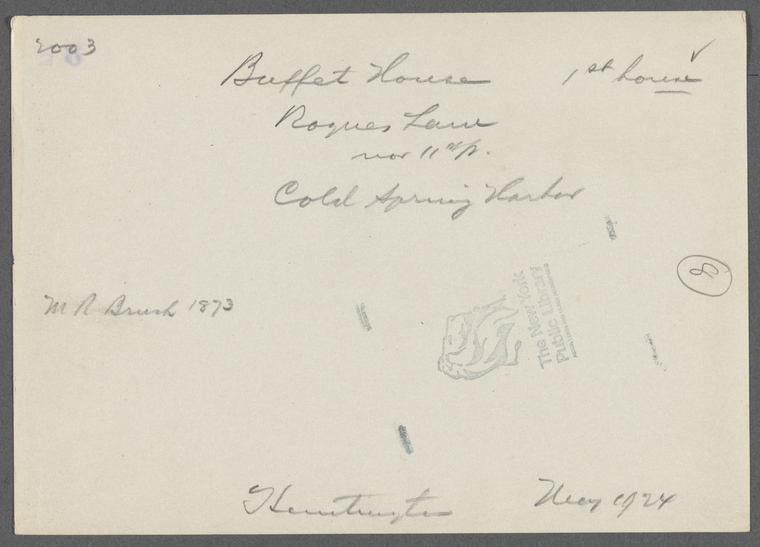 2003
Buffet House 1st house
Rogues Lane
nor 11
Cold Spring Harbor
8
M R Brush 1873
The New York
Public Library
Huntington May 1924